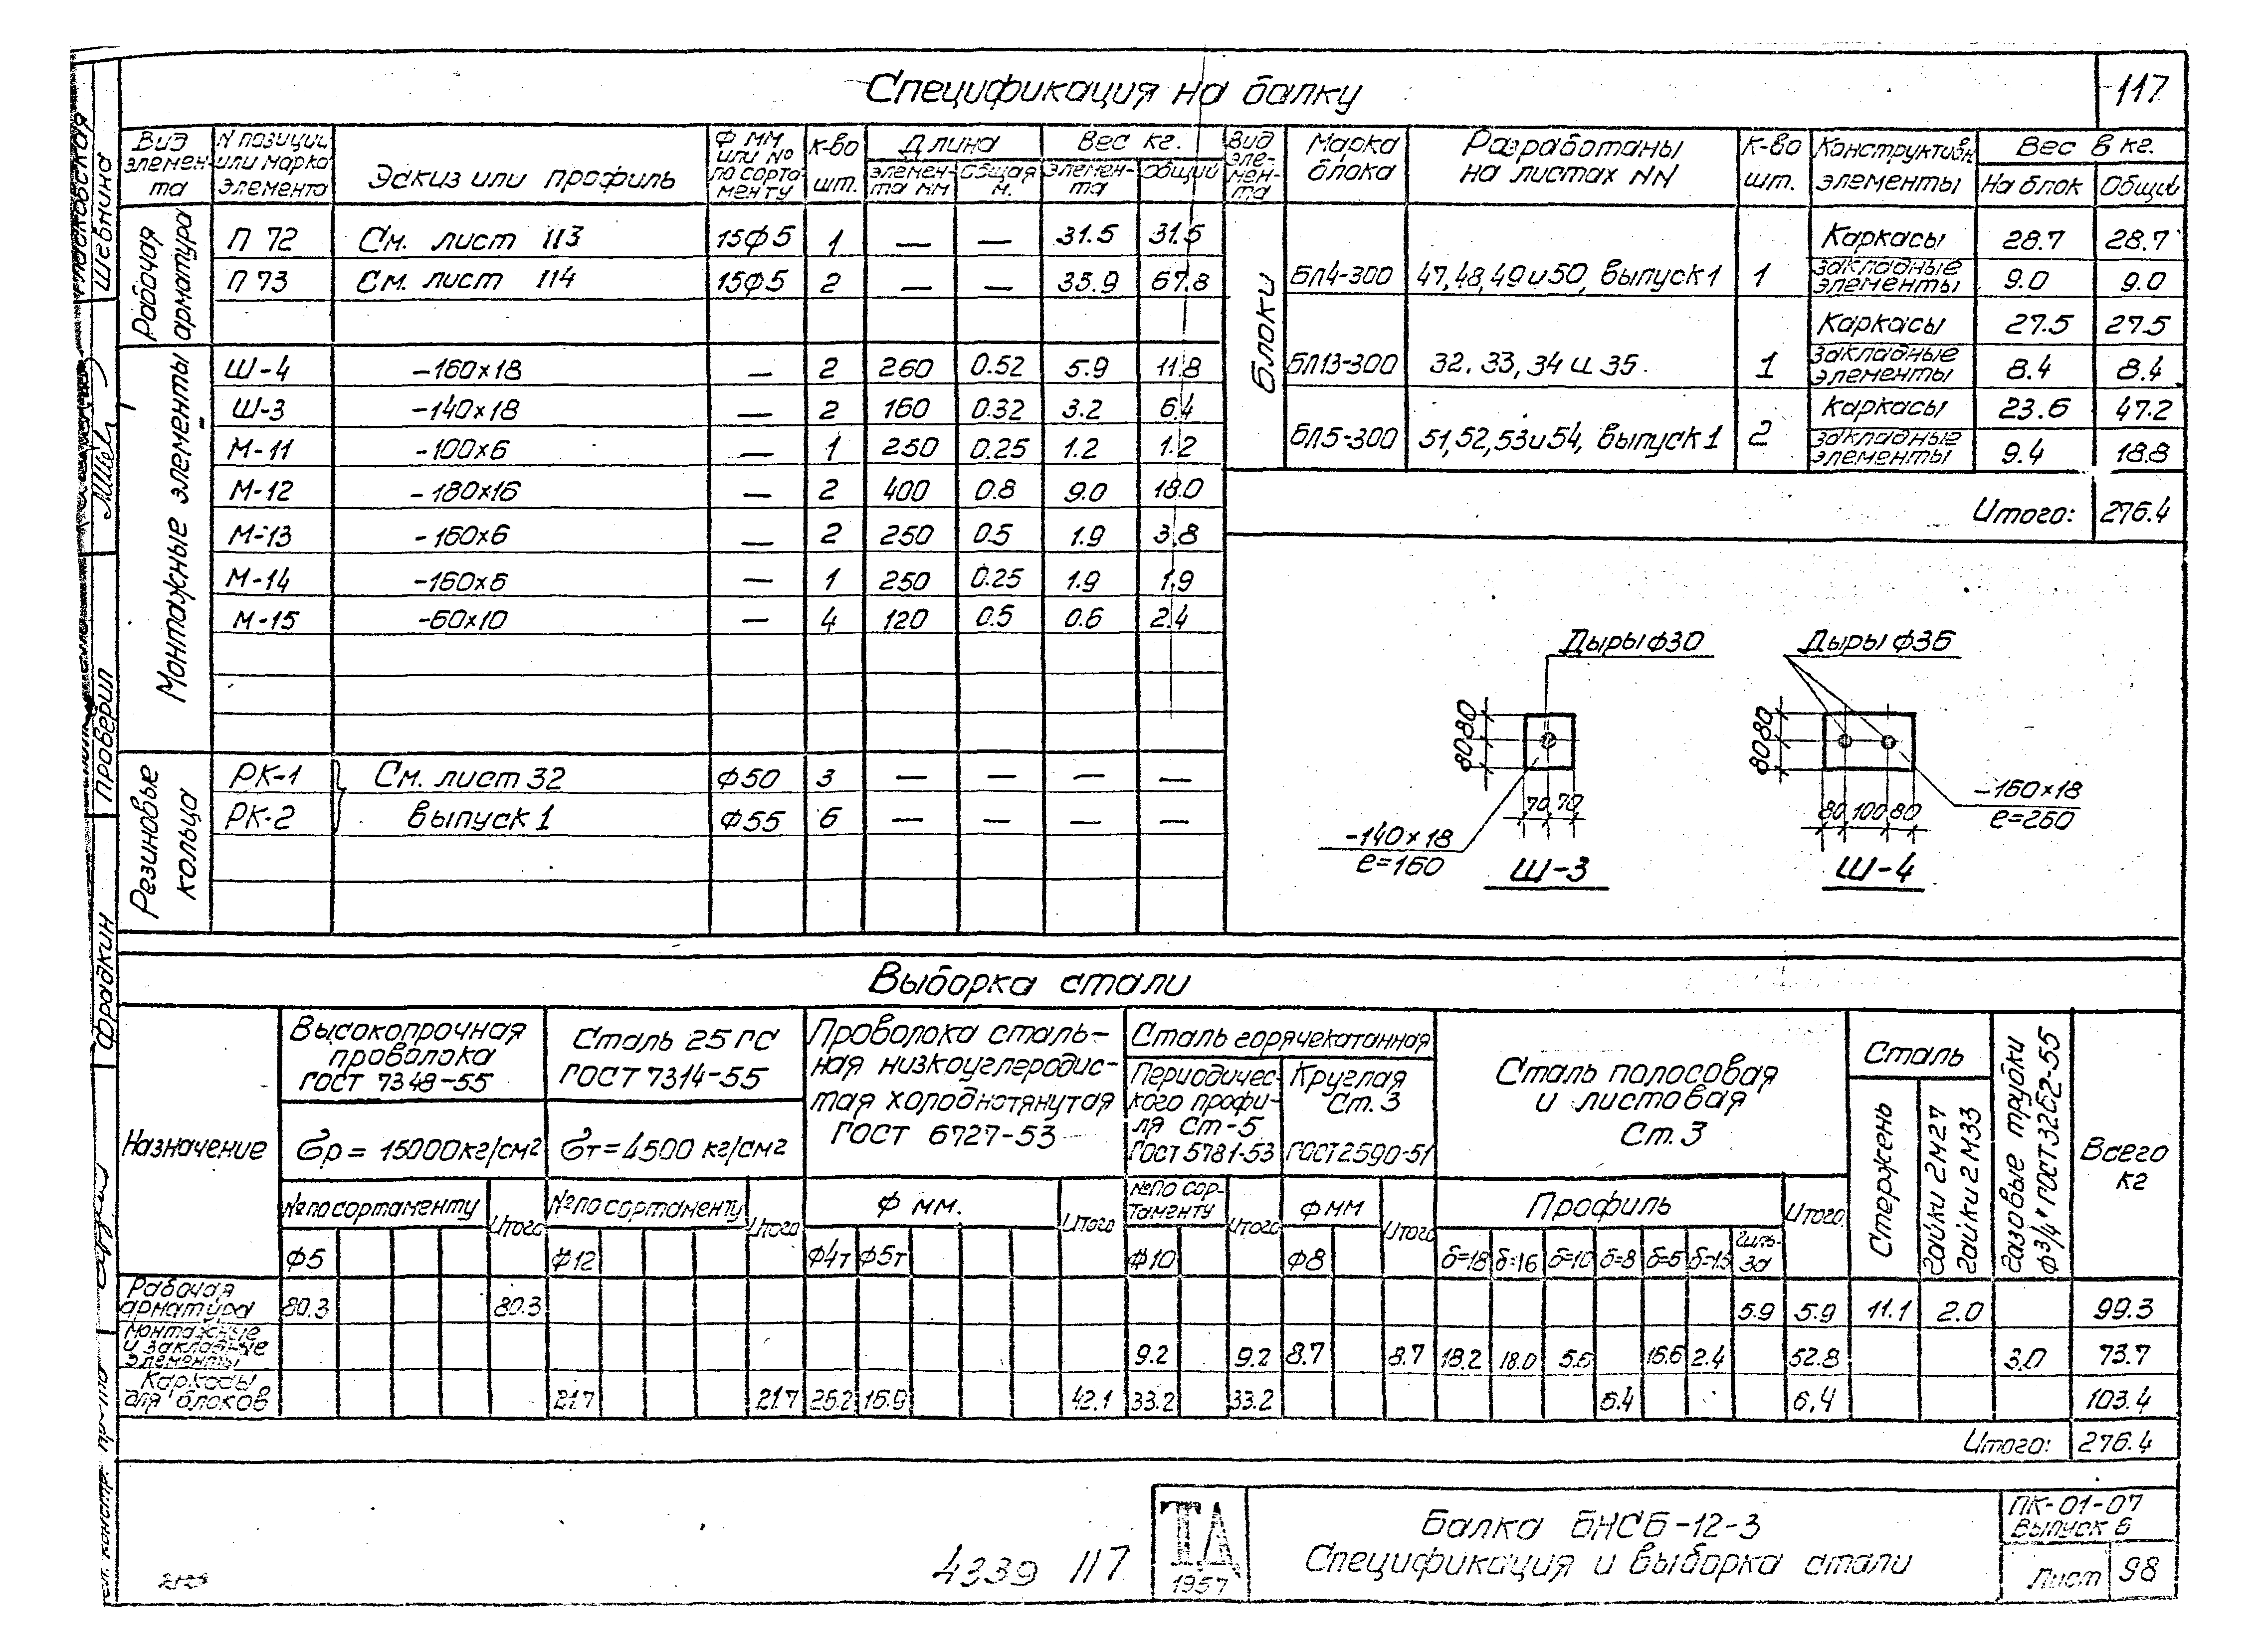 Спецификация на балку
117
Вид элемента
N позиции или марка элемента
Эскиз или профиль
Ф мм или № по сортаменту
К-во шт.
Длина
элемента мм
Общая м.
Вес кг.
Элемента
Общий
Рабочая арматура
П 72 См. лист 113 15ф5 1 — — 31.5 31.5
П 73 См. лист 114 15ф5 2 — — 33.9 67.8
Монтажные элементы
Ш-4 -160×18 — 2 260 0.52 5.9 11.8
Ш-3 -140×18 — 2 160 0.32 3.2 6.4
М-11 -100×6 — 1 250 0.25 1.2 1.2
М-12 -180×16 — 2 400 0.8 9.0 18.0
М-13 -160×6 — 2 250 0.5 1.9 3.8
М-14 -160×6 — 1 250 0.25 1.9 1.9
М-15 -60×10 — 4 120 0.5 0.6 2.4
Резиновые кольца
РК-1 См. лист 32 ф50 3 — — — —
РК-2 выпуск 1 ф55 6 — — — —
Вид элемента
Марка блока
Разработаны на листах NN
К-во шт.
Конструктивн. элементы
Вес в кг.
На блок
Общий
Блоки
БЛ4-300 47, 48, 49 и 50, выпуск 1 1
Каркасы 28.7 28.7
Закладные элементы 9.0 9.0
БЛ13-300 32, 33, 34 и 35. 1
Каркасы 27.5 27.5
Закладные элементы 8.4 8.4
БЛ5-300 51, 52, 53 и 54, выпуск 1 2
Каркасы 23.6 47.2
Закладные элементы 9.4 18.8
Итого: 276.4
Дыры ф30
80 80
70 70
-140×18
e=160
Ш-3
Дыры ф36
80 80
80 100 80
-160×18
e=260
Ш-4
Выборка стали
Назначение
Высокопрочная проволока ГОСТ 7348-55
σр = 15000 кг/см2
№ по сортаменту
Итого
ф5
Сталь 25 ГС ГОСТ 7314-55
σт = 4500 кг/см2
№ по сортаменту
Итого
#12
Проволока стальная низкоуглеродистая холоднотянутая ГОСТ 6727-53
Ф мм.
Итого
ф4т ф5т
Сталь горячекатанная
Периодического профиля Ст-5 ГОСТ 5781-53
№ по сортаменту
Итого
#10
Круглая Ст. 3 ГОСТ 2590-51
Ф мм
Итого
ф8
Сталь полосовая и листовая Ст. 3
Профиль
Итого
δ=18 δ=16 δ=10 δ=8 δ=6 δ=1.5 Гильза
Сталь
Стержень
Гайки 2 М27
Гайки 2 М33
Газовые трубки ф3/4" ГОСТ 3262-55
Всего кг
Рабочая арматура 80.3 80.3 5.9 5.9 11.1 2.0 99.3
Монтажные и закладные элементы 9.2 9.2 8.7 8.7 18.2 18.0 5.6 16.6 2.4 52.8 3.0 73.7
Каркасы для блоков 21.7 21.7 25.2 16.9 42.1 33.2 33.2 6.4 6.4 103.4
Итого: 276.4
4339 117
ТД
1957
Балка БНСБ-12-3
Спецификация и выборка стали
ПК-01-07
Выпуск 6
Лист 98
Проверил
Фрадкин
Шевнина